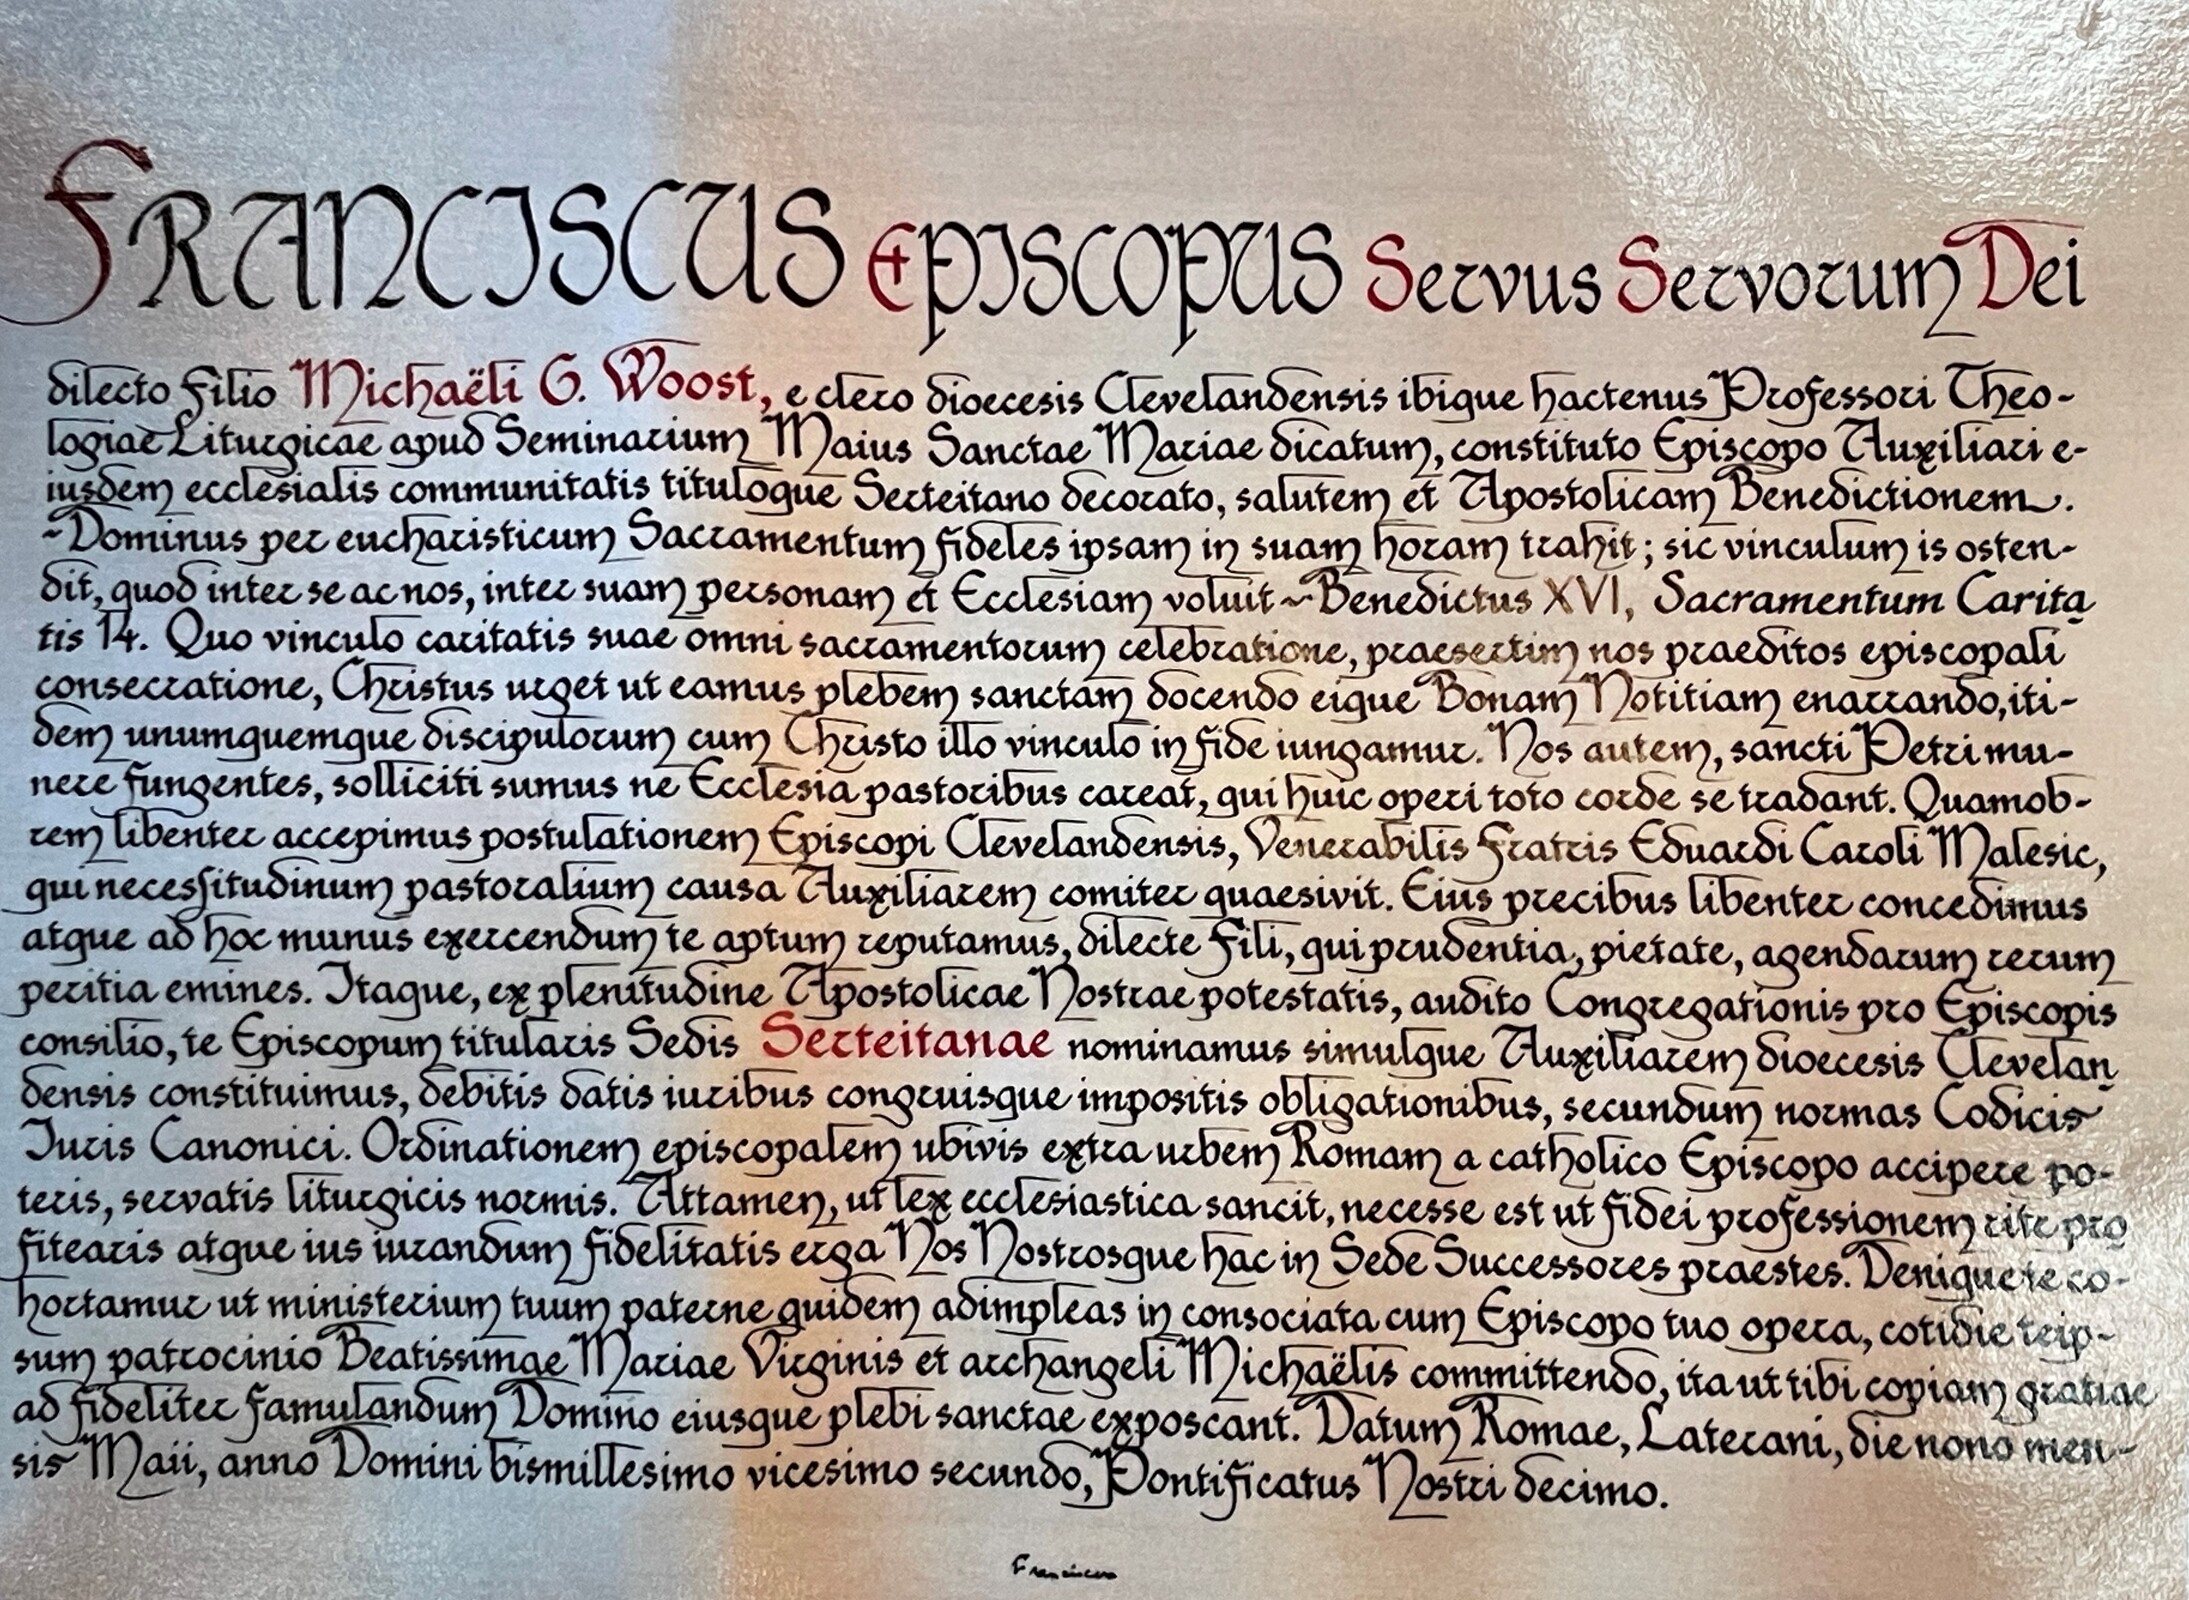 FRANCISCUS EPISCOPUS Servus Servorum Dei
dilecto Filio Michaëli G. Woost, e clero dioecesis Clevelandensis ibique hactenus Professori Theo-
logiae Liturgicae apud Seminarium Maius Sanctae Mariae dicatum, constituto Episcopo Auxiliari e-
iusdem ecclesialis communitatis tituloque Serteitano decorato, salutem et Apostolicam Benedictionem.
~Dominus per eucharisticum Sacramentum fideles ipsam in suam horam trahit; sic vinculum is osten-
dit, quod inter se ac nos, inter suam personam et Ecclesiam voluit~Benedictus XVI, Sacramentum Carita
tis 14. Quo vinculo caritatis suae omni sacramentorum celebratione, praesertim nos praeditos episcopali
consecratione, Christus urget ut eamus plebem sanctam docendo eique Bonam Notitiam enarrando, iti-
dem unumquemque discipulorum cum Christo illo vinculo in fide iungamur. Nos autem, sancti Petri mu-
nere fungentes, solliciti sumus ne Ecclesia pastoribus careat, qui huic operi toto corde se tradant. Quamob-
rem libenter accepimus postulationem Episcopi Clevelandensis, Venerabilis Fratris Eduardi Caroli Malesic,
qui necessitudinum pastoralium causa Auxiliarem comiter quaesivit. Eius precibus libenter concedimus
atque ad hoc munus exercendum te aptum reputamus, dilecte Fili, qui prudentia, pietate, agendarum rerum
peritia emines. Itaque, ex plenitudine Apostolicae Nostrae potestatis, audito Congregationis pro Episcopis
consilio, te Episcopum titularis Sedis Serteitanae nominamus simulque Auxiliarem dioecesis Clevelan
densis constituimus, debitis datis iuribus congruisque impositis obligationibus, secundum normas Codicis
Iuris Canonici. Ordinationem episcopalem ubivis extra urbem Romam a catholico Episcopo accipere po-
teris, servatis liturgicis normis. Attamen, ut lex ecclesiastica sancit, necesse est ut fidei professionem rite pro
fitearis atque ius iurandum fidelitatis erga Nos Nostrosque hac in Sede Successores praestes. Denique te co-
hortamur ut ministerium tuum paterne quidem adimpleas in consociata cum Episcopo tuo opera, cotidie teip-
sum patrocinio Beatissimae Mariae Virginis et archangeli Michaëlis committendo, ita ut tibi copiam gratiae
ad fideliter famulandum Domino eiusque plebi sanctae exposcant. Datum Romae, Laterani, die nono men-
sis Maii, anno Domini bismillesimo vicesimo secundo, Pontificatus Nostri decimo.
Franciscus